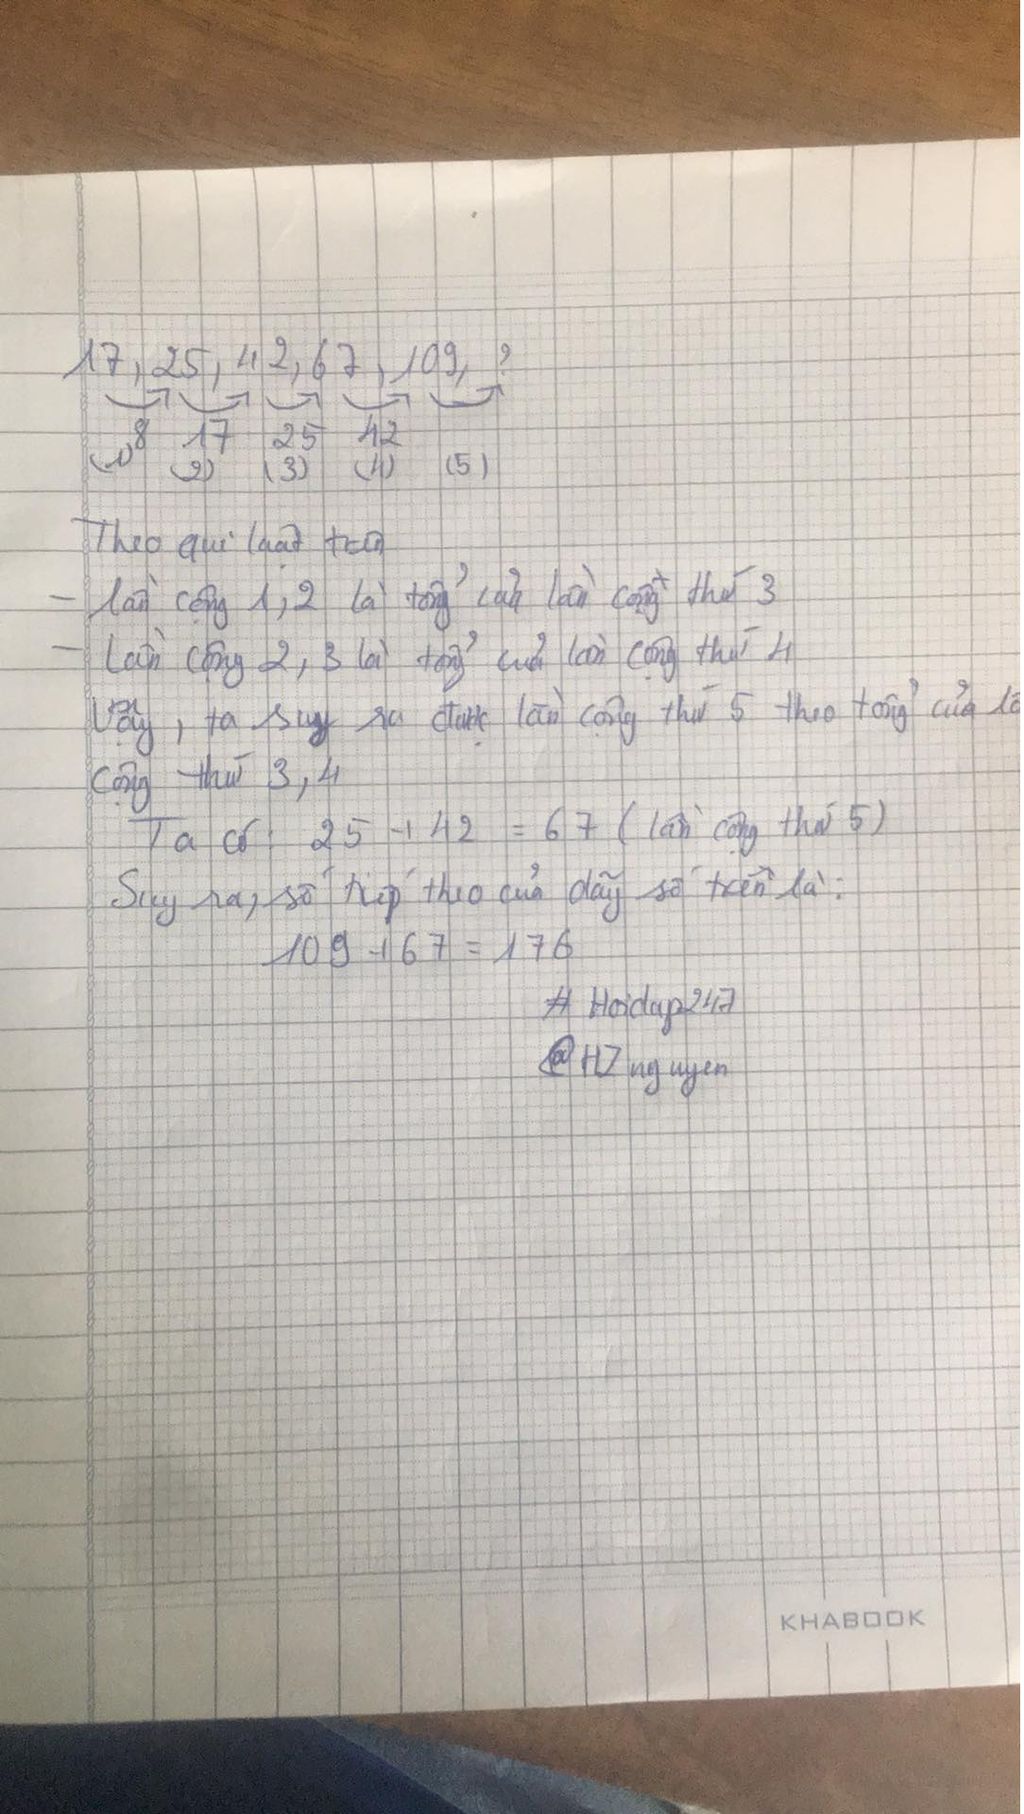 17, 25, 42, 67, 109, ?
8 17 25 42
(1) (2) (3) (4) (5)
Theo qui luật trên
- Lần cộng 1, 2 là tổng của lần cộng thứ 3
- Lần cộng 2, 3 là tổng của lần cộng thứ 4
Vậy, ta suy ra được lần cộng thứ 5 theo tổng của
cộng thứ 3, 4
Ta có: 25 + 42 = 67 (lần cộng thứ 5)
Suy ra, số tiếp theo của dãy số trên là:
109 + 67 = 176
# Hoidap247
@HJnguyen
KHABOOK